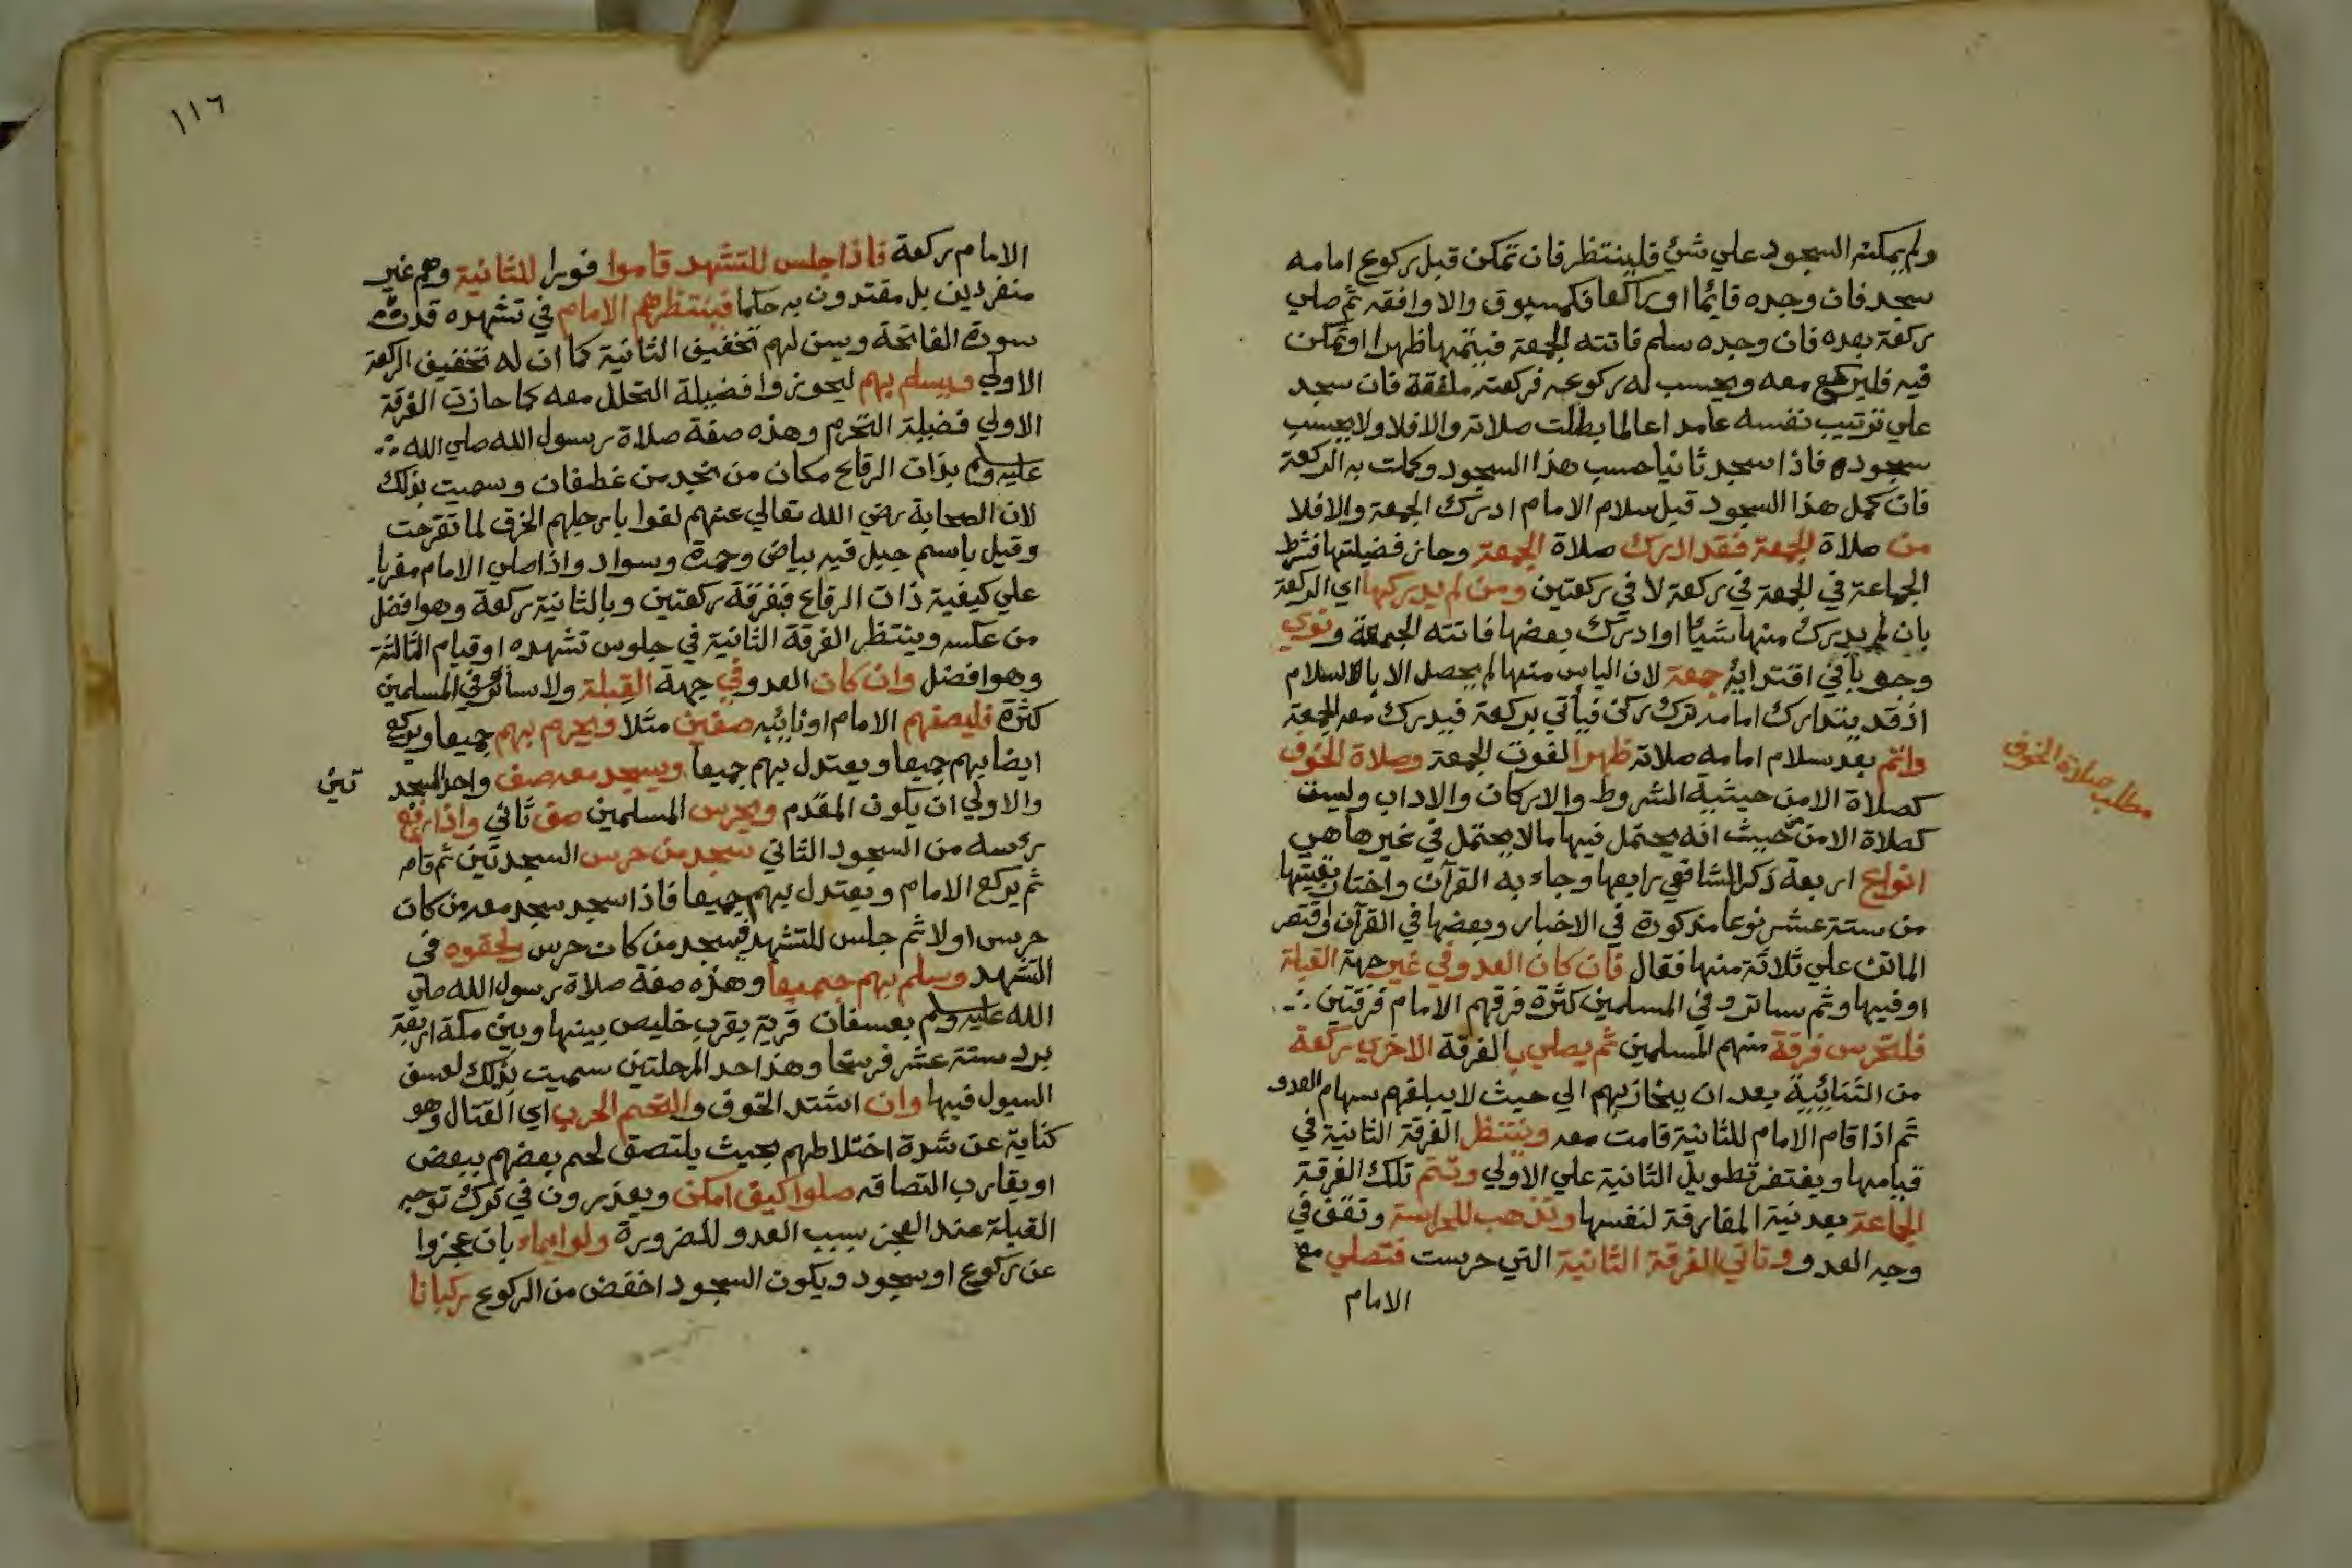 ولم يمكنه السجود علي شئ فلينتظر فان تمكن قبل ركوع امامه
سجد فان وجده قايما او راكعا فكمسبوق والا وافقه ثم صلي
ركعة بعده فان وجده سلم فاتته الجمعة فيتمها ظهرا او تمكن
فيه فليركع معه ويحسب له ركوعه فركعته ملفقة فان سجد
علي ترتيب نفسه عامدا عالما بطلت صلاته والا فلا ولا يحسب
سجوده فاذا سجد ثانيا حسب هذا السجود وكملت به الركعة
فان كمل هذا السجود قبل سلام الامام ادرك الجمعة والا فلا
من صلاة الجمعة فقد ادرك صلاة الجمعة وحاز فضيلتها فشرط
الجماعة في الجمعة في ركعة لا في ركعتين ومن لم يدركها اي الركعة
بان لم يدرك منها شيئا او ادرك بعضها فاتته الجمعة ونوي
وجوبا في اقتدايه جمعة لان الياس منها لم يحصل الا بالسلام
اذ قد يتدارك امامه ترك ركن فياتي بركعة فيدرك معه الجمعة
واتم بعد سلام امامه صلاته ظهرا لفوت الجمعة وصلاة الخوف
كصلاة الامن حيثية الشروط والاركان والاداب وليست
كصلاة الامن من حيث انه يحتمل فيها مالا يحتمل في غيرها هي
انواع اربعة ذكر الشافعي رابعها وجاء به القرآن واختار بقيتها
من ستة عشر نوعا مذكورة في الاخبار وبعضها في القرآن واقتصر
الماتن علي ثلاثة منها فقال فان كان العدو في غير جهة القبلة
او فيها وثم ساتر وفي المسلمين كثرة فرقهم الامام فرقتين
فلتحرس فرقة منهم المسلمين ثم يصلي بالفرقة الاخري ركعة
من الثنائية بعد ان ينحاز بهم الي حيث لا يبلغهم سهام العدو
ثم اذا قام الامام للثانية قامت معه وينتظر الفرقة الثانية في
قيامها ويغتفر تطويل الثانية علي الاولي وتتم تلك الفرقة
الجماعة بعد نية المفارقة لنفسها وتذهب للحراسة وتقف في
وجه العدو وتاتي الفرقة الثانية التي حرست فتصلي مع
الامام
مطلب صلاة الخوف
١١٦
الامام ركعة فاذا جلس للتشهد قاموا فورا للثانية وهم غير
منفردين بل مقتدون به حكما فينتظرهم الامام في تشهده قدر
سورة الفاتحة ويسن لهم تخفيف الثانية كما ان له تخفيف الركعة
الاولي ويسلم بهم ليحوزوا فضيلة التحلل معه كما حازت الفرقة
الاولي فضيلة التحرم وهذه صفة صلاة رسول الله صلي الله
عليه وسلم بذات الرقاع مكان من نجد من غطفان وسميت بذلك
لان الصحابة رضي الله تعالي عنهم لفوا بارجلهم الخرق لما تقرحت
وقيل باسم جبل فيه بياض وحمرة وسواد واذا صلي الامام مغربا
علي كيفية ذات الرقاع فبفرقة ركعتين وبالثانية ركعة وهو افضل
من عكسه وينتظر الفرقة الثانية في جلوس تشهده او قيام الثالثة
وهو افضل وان كان العدو في جهة القبلة ولا ساتر وفي المسلمين
كثرة فليصفهم الامام او نائبه صفين مثلا ويحرم بهم جميعا ويركع
ايضا بهم جميعا ويعتدل بهم جميعا ويسجد معه صف واحد السجد
تين
والاولي ان يكون المقدم ويحرس المسلمين صف ثاني واذا رفع
رئسه من السجود الثاني سجد من حرس السجدتين ثم قام
ثم يركع الامام ويعتدل بهم جميعا فاذا سجد سجد معه من كان
حرس اولا ثم جلس للتشهد فيسجد من كان حرس ولحقوه في
التشهد وسلم بهم جميعا وهذه صفة صلاة رسول الله صلي
الله عليه وسلم بعسفان قرية بقرب خليص بينها وبين مكة اربعة
برد ستة عشر فرسخا وهذا حد المرحلتين سميت بذلك لعسف
السيول فيها وان اشتد الخوف والتحم الحرب اي القتال وهو
كناية عن شدة اختلاطهم بحيث يلتصق لحم بعضهم ببعض
او يقارب التصاقه صلوا كيف امكن ويعذرون في ترك توجه
القبلة عند العجز بسبب العدو للضرورة ولو ايماء بان عجزوا
عن ركوع او سجود ويكون السجود اخفض من الركوع ركبانا